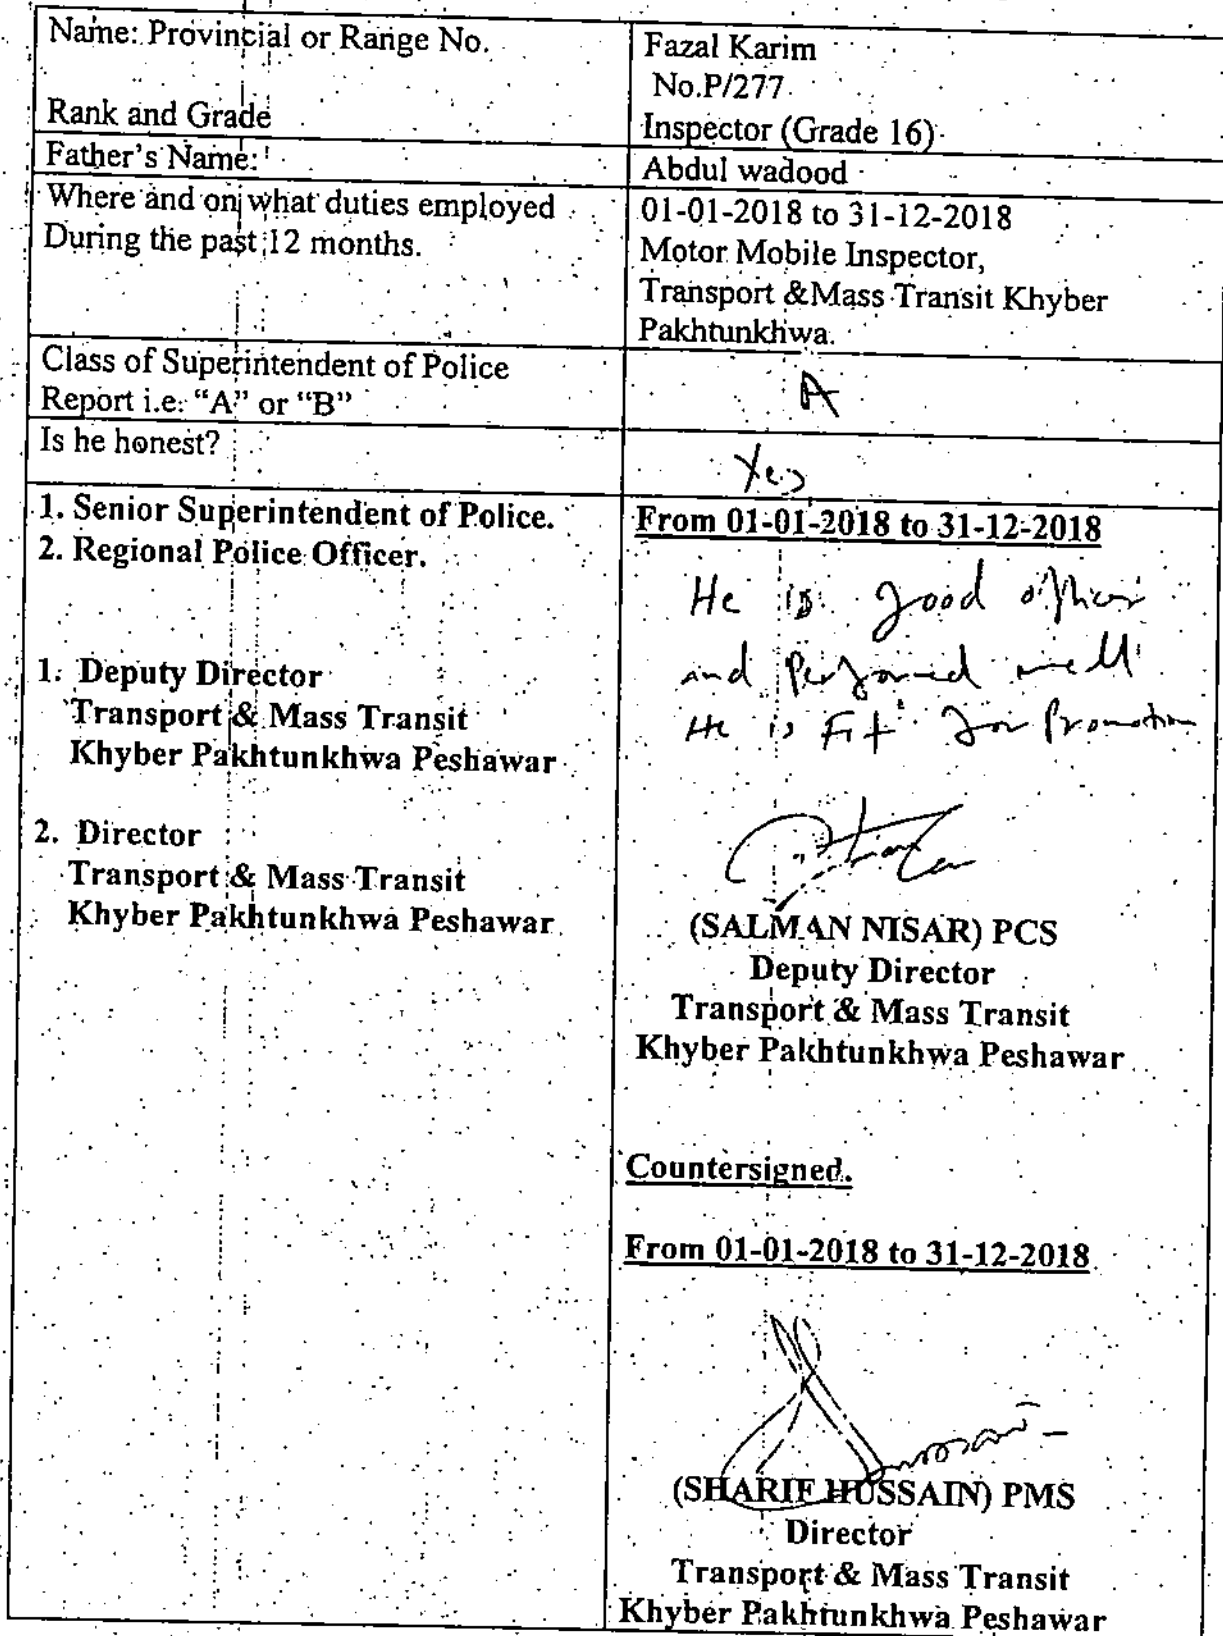 Name: Provincial or Range No.
Rank and Grade
Fazal Karim
No.P/277
Inspector (Grade 16)
Father's Name:
Abdul wadood
Where and on what duties employed
During the past 12 months.
01-01-2018 to 31-12-2018
Motor Mobile Inspector,
Transport &Mass Transit Khyber
Pakhtunkhwa.
Class of Superintendent of Police
Report i.e: "A" or "B"
A
Is he honest?
Yes
1. Senior Superintendent of Police.
2. Regional Police Officer.
1. Deputy Director
Transport & Mass Transit
Khyber Pakhtunkhwa Peshawar
2. Director
Transport & Mass Transit
Khyber Pakhtunkhwa Peshawar
From 01-01-2018 to 31-12-2018
He is good officer
and Performed well
He is Fit for Promotion
(SALMAN NISAR) PCS
Deputy Director
Transport & Mass Transit
Khyber Pakhtunkhwa Peshawar
Countersigned.
From 01-01-2018 to 31-12-2018
(SHARIF HUSSAIN) PMS
Director
Transport & Mass Transit
Khyber Pakhtunkhwa Peshawar